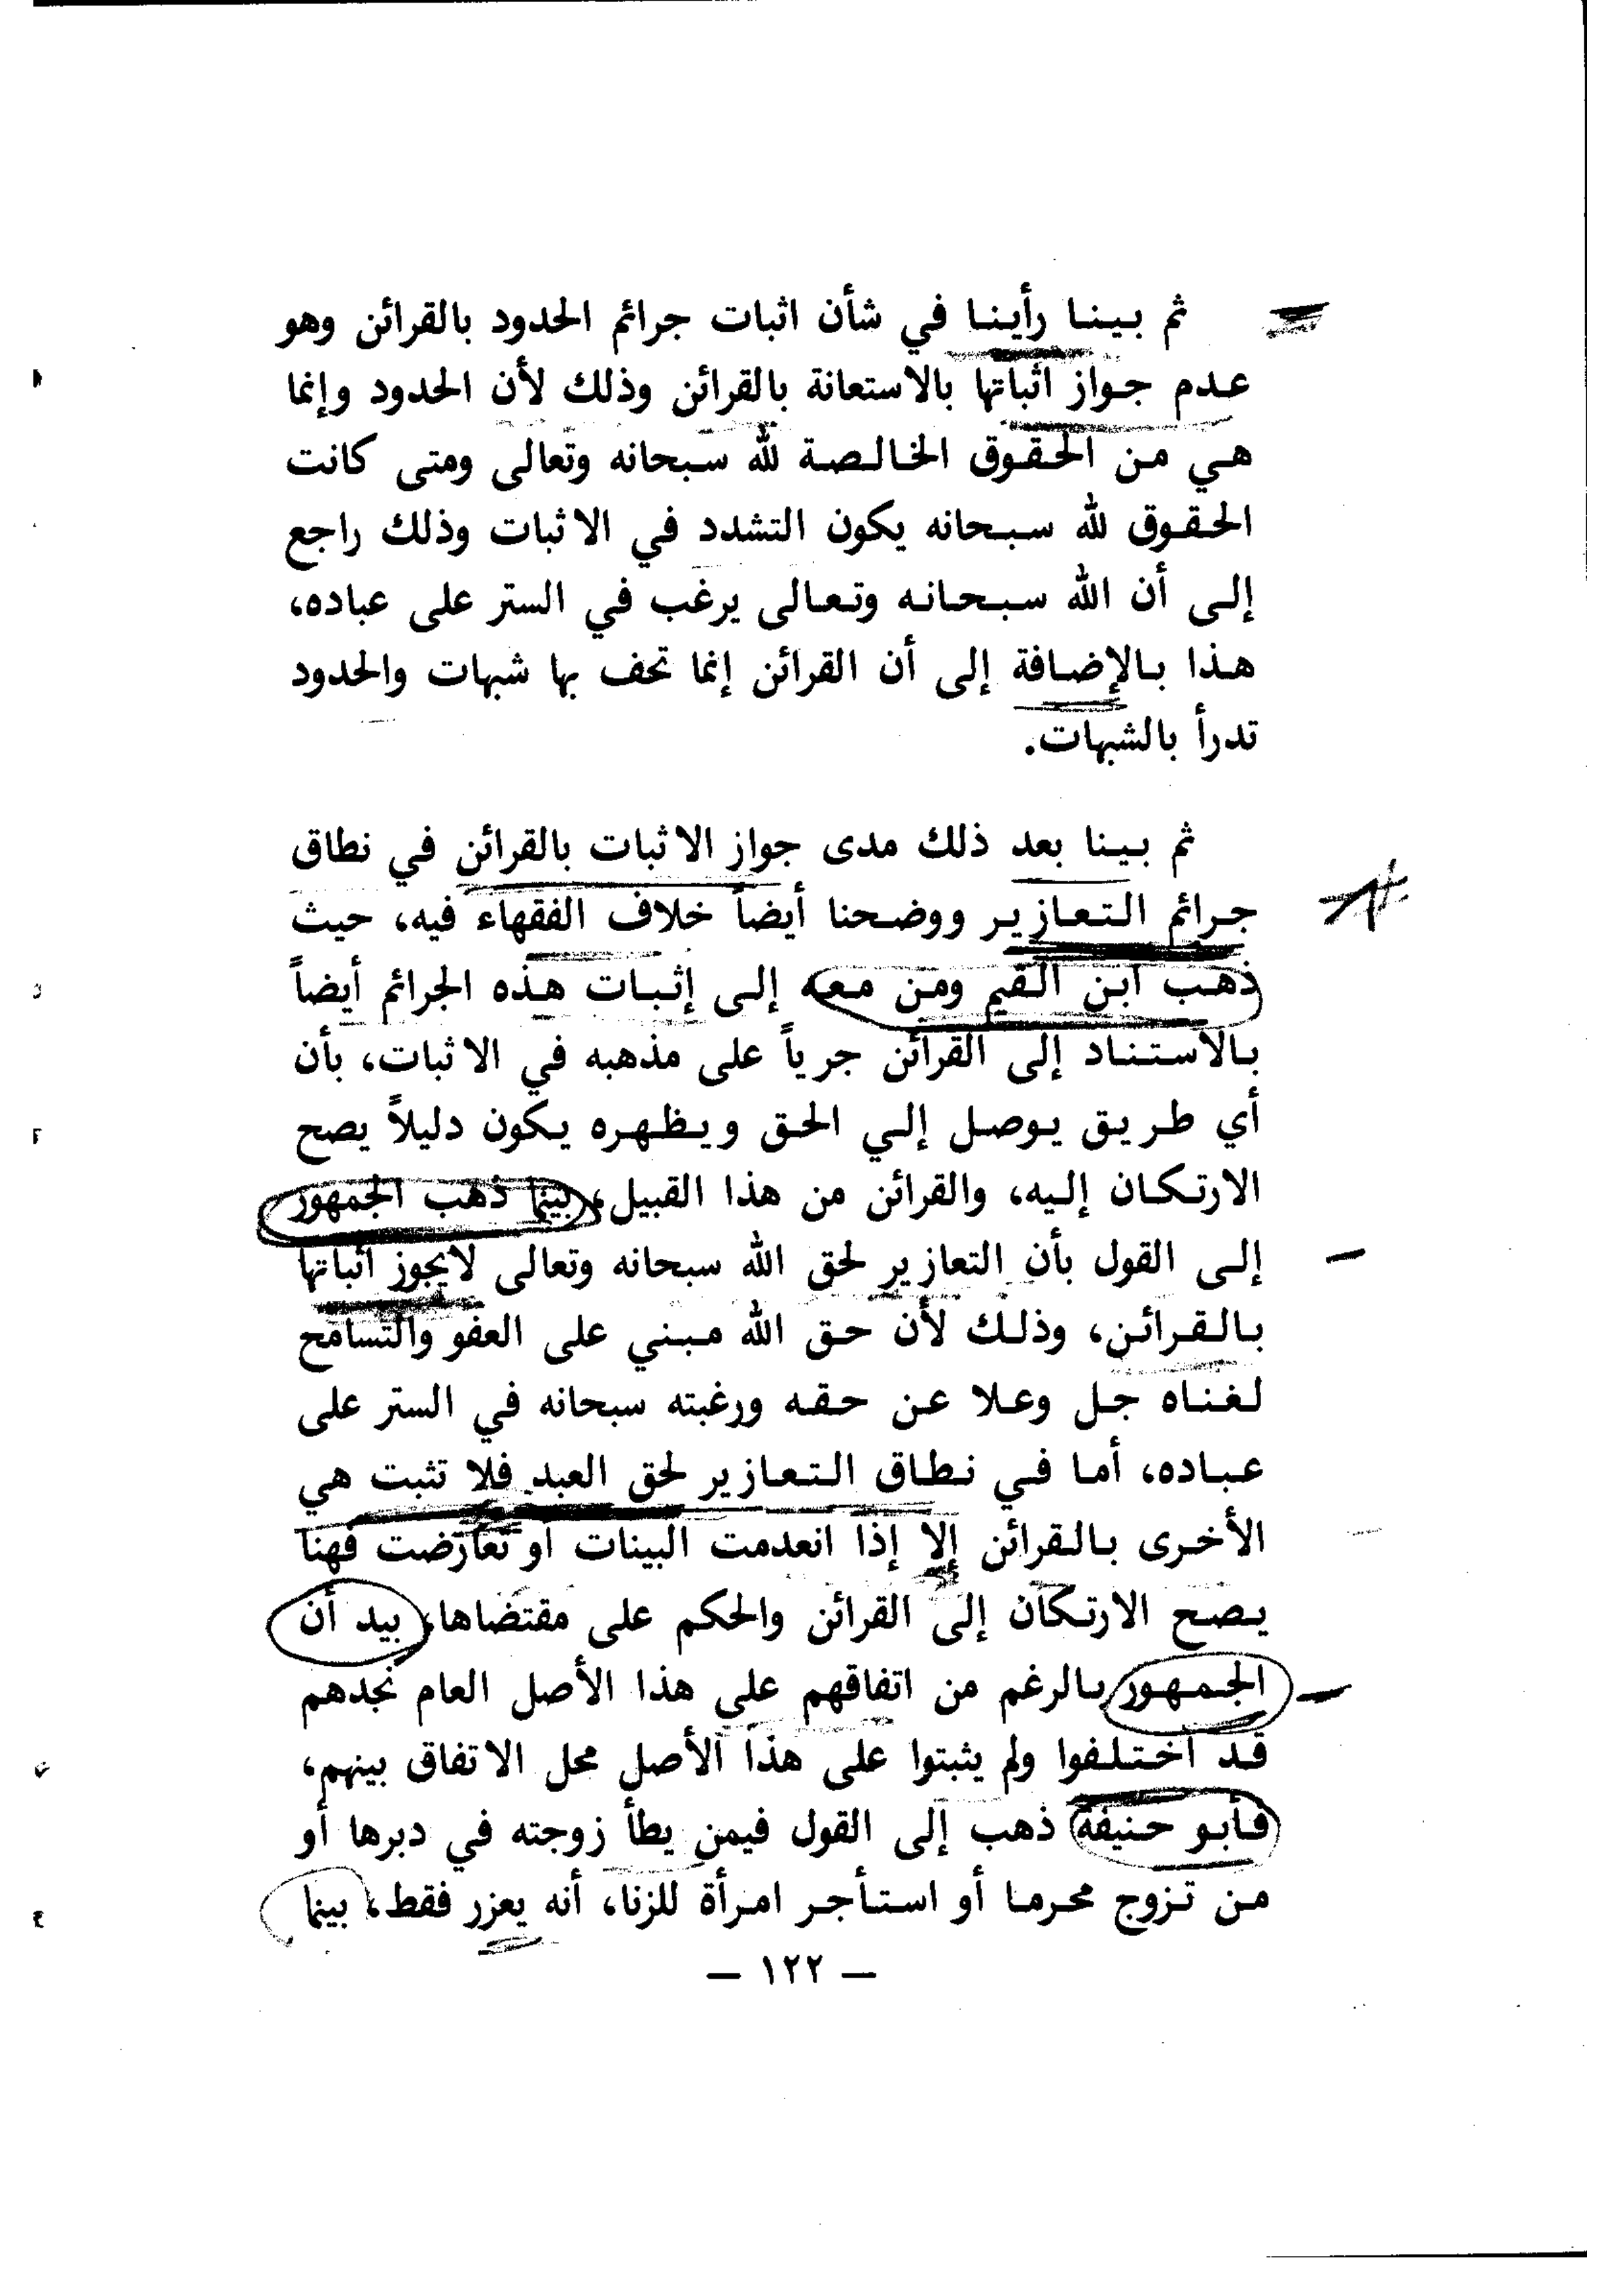 ثم بينا رأينا في شأن اثبات جرائم الحدود بالقرائن وهو
عدم جواز اثباتها بالاستعانة بالقرائن وذلك لأن الحدود وإنما
هي من الحقوق الخالصة لله سبحانه وتعالى ومتى كانت
الحقوق لله سبحانه يكون التشدد في الاثبات وذلك راجع
إلى أن الله سبحانه وتعالى يرغب في الستر على عباده،
هذا بالإضافة إلى أن القرائن إنما تحف بها شبهات والحدود
تدرأ بالشبهات.
ثم بينا بعد ذلك مدى جواز الاثبات بالقرائن في نطاق
جرائم التعازير ووضحنا أيضاً خلاف الفقهاء فيه، حيث
ذهب ابن القيم ومن معه إلى إثبات هذه الجرائم أيضاً
بالاستناد إلى القرائن جرياً على مذهبه في الاثبات، بأن
أي طريق يوصل إلي الحق ويظهره يكون دليلاً يصح
الارتكان إليه، والقرائن من هذا القبيل، بينما ذهب الجمهور
إلى القول بأن التعازير لحق الله سبحانه وتعالى لايجوز اثباتها
بالقرائن، وذلك لأن حق الله مبني على العفو والتسامح
لغناه جل وعلا عن حقه ورغبته سبحانه في الستر على
عباده، أما في نطاق التعازير لحق العبد فلا تثبت هي
الأخرى بالقرائن إلا إذا انعدمت البينات او تعارضت فهنا
يصح الارتكان إلى القرائن والحكم على مقتضاها، بيد أن
الجمهور بالرغم من اتفاقهم على هذا الأصل العام نجدهم
قد اختلفوا ولم يثبتوا على هذا الأصل محل الاتفاق بينهم،
فأبو حنيفة ذهب إلى القول فيمن يطأ زوجته في دبرها أو
من تزوج محرما أو استأجر امرأة للزنا، أنه يعزر فقط، بينما
— ١٢٢ —